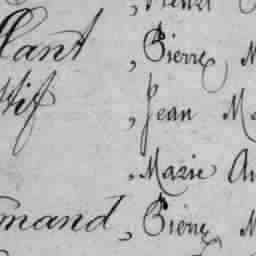 lant , Pierre M
tif , Jean Ma
. Marie An
mand , Pierre M